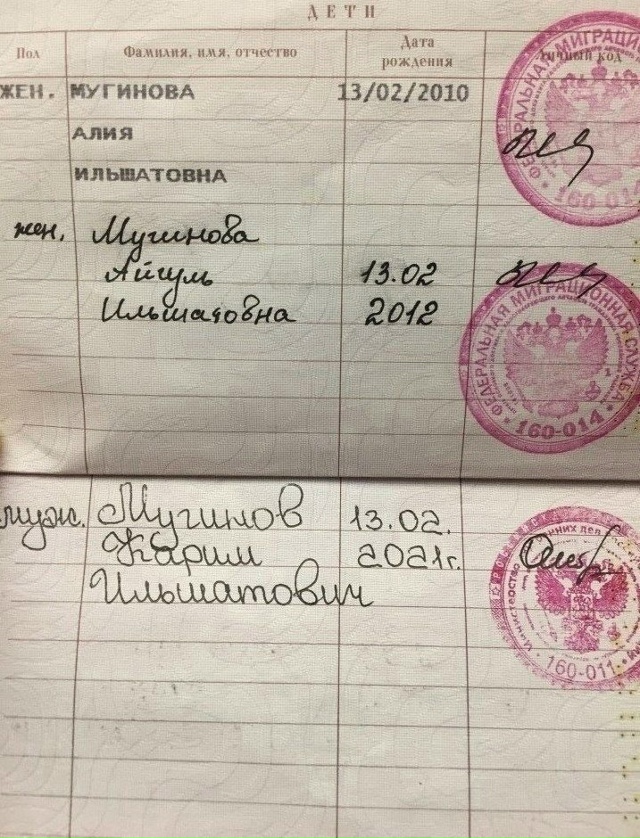 ДЕТИ
Пол Фамилия, имя, отчество Дата рождения Личный код
ЖЕН. МУГИНОВА 13/02/2010
АЛИЯ
ИЛЬШАТОВНА
ФЕДЕРАЛЬНАЯ МИГРАЦИОН
160-01
жен. Мугинова
Айгуль 13.02
Ильшатовна 2012
ФЕДЕРАЛЬНАЯ МИГРАЦИОННАЯ СЛУЖБА
160-014
муж. Мугинов 13.02.
Карим 2021г.
Ильшатович
Министерство внутренних дел
160-011